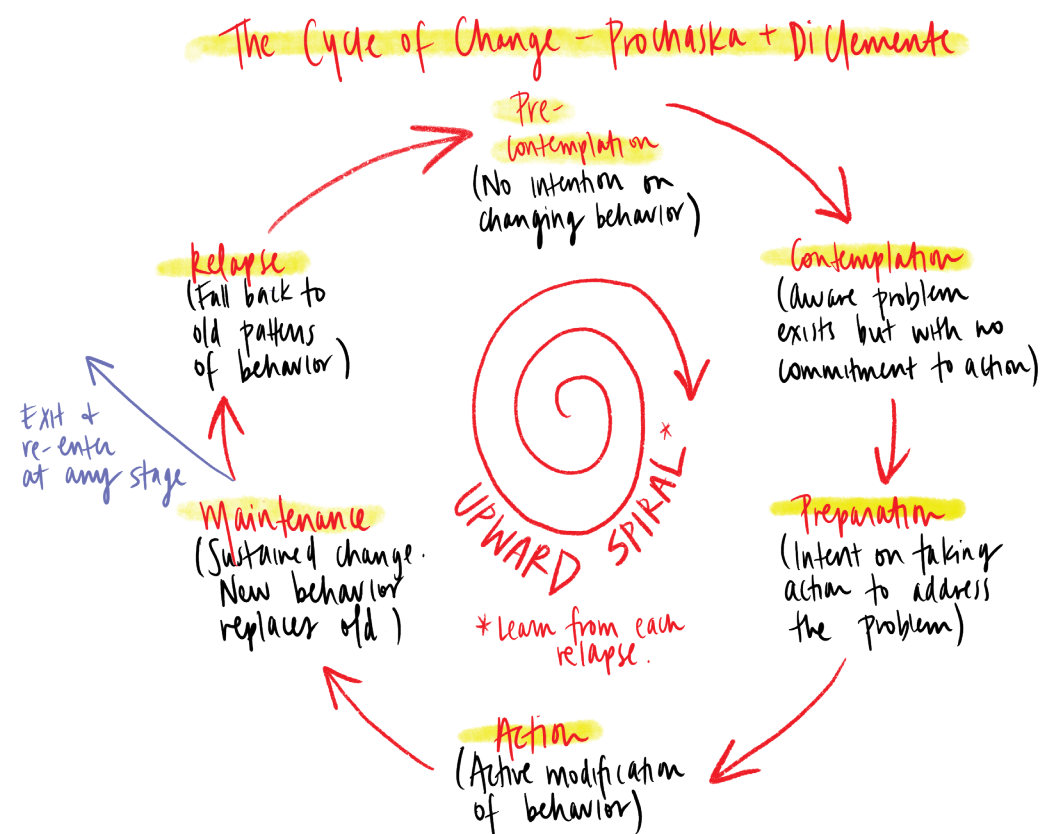 The Cycle of Change - Prochaska + DiClemente
Pre-
contemplation
(No intention on
changing behavior)
Contemplation
(Aware problem
exists but with no
commitment to action)
Preparation
(Intent on taking
action to address
the problem)
Action
(Active modification
of behavior)
Maintenance
(Sustained change.
New behavior
replaces old)
Relapse
(Fall back to
old patterns
of behavior)
Exit &
re-enter
at any stage
UPWARD SPIRAL*
*Learn from each
relapse.